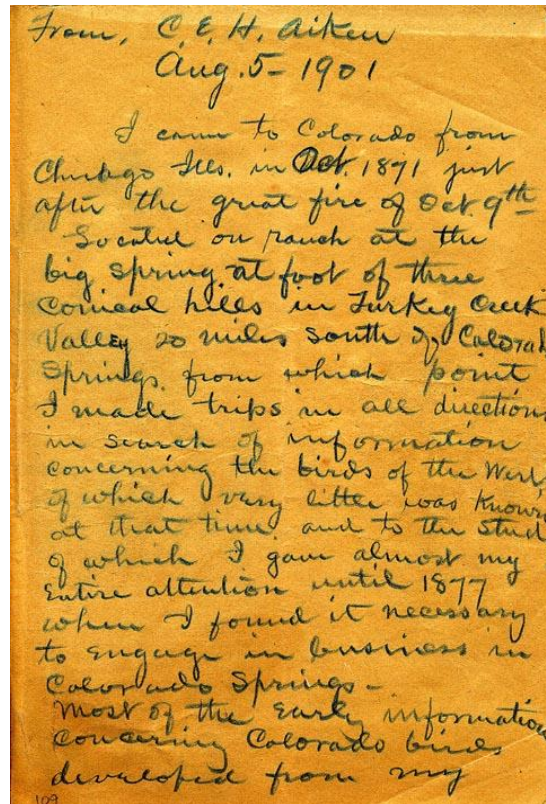 From, C. E. H. Aiken
Aug. 5 - 1901
I came to Colorado from
Chicago Ills. in Oct. 1871 just
after the great fire of Oct. 9th
Located on ranch at the
big spring at foot of three
Conical hills in Turkey Creek
Valley 20 miles South of Colorad
Springs. from which point
I made trips in all direction
in search of information
concerning the birds of the West,
of which very little was known
at that time. and to the stud
of which I gave almost my
Entire attention until 1877
when I found it necessary
to engage in business in
Colorado Springs -
most of the Early information
concerning Colorado birds
developed from my
109